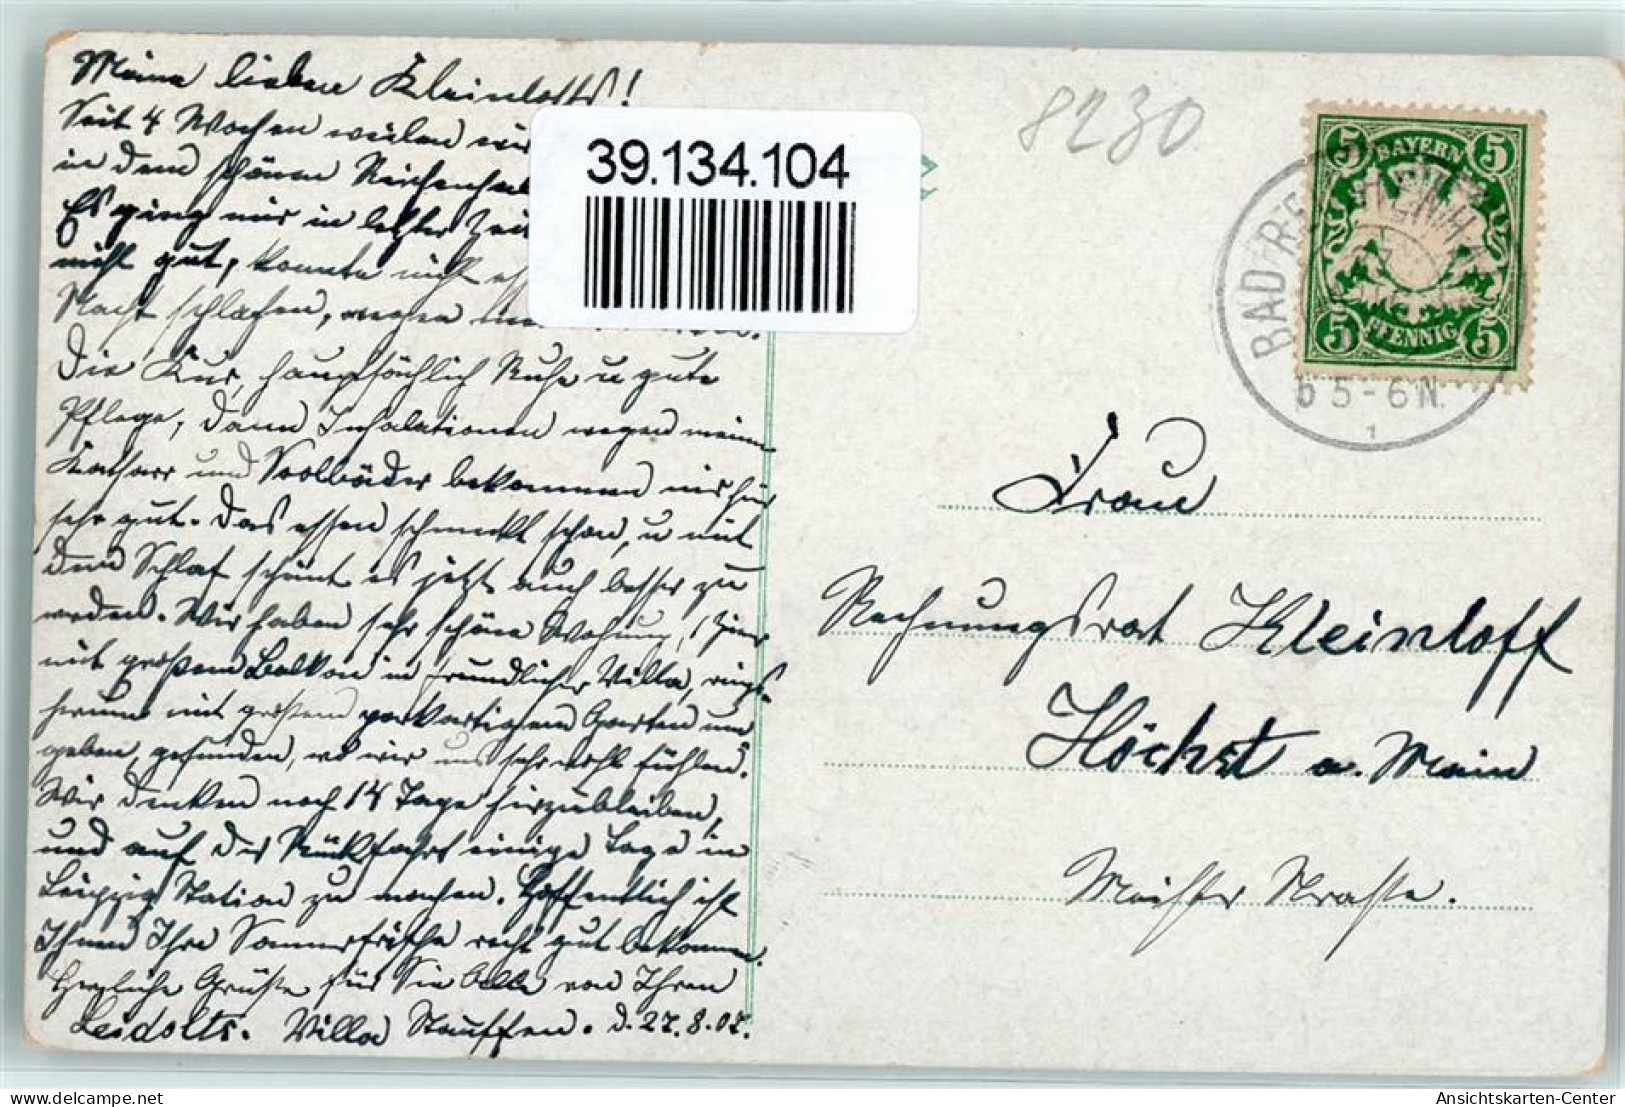 Meine lieben Kleinloffs!
Seit 4 Wochen weilen wir
in dem schönen Reichenhal
Es ging mir in letzter Zeit
nicht gut, konnte nicht es
Nacht schlafen, wegen
Die Kur, hauptsächlich Ruhe u gute
Pflege, dann Inhalationen wegen meinem
Katharr und Soolbäder bekommen mir hier
sehr gut. Das essen schmeckt schon, u mit
dem Schlaf scheint es jetzt auch besser zu
werden. Wir haben sehr schöne Wohung, 1 Zimr
mit großem Balkon in freundlicher Villa, rings-
herum mit großem parkartigem Garten um
geben, gefunden, wo wir uns sehr wohl fühlen.
Wir denken noch 14 Tage hierzubleiben,
und auf der Rückfahrt einige Tage in
Leipzig Station zu machen. Hoffentlich ist
Ihnen Ihre Sommerfrische recht gut bekommen.
Herzliche Grüße für Sie Alle von Ihren
Leidolts. Villa Stauffen. d. 27.8.07.
39.134.104
8230
BAYERN
5 5
5 5
PFENNIG
BAD REICHENHALL
5-6 N.
1
Frau
Rechnungsrat Kleinloff
Höchst a. Main
Meister Straße.
Ansichtskarten-Center
delcampe.net